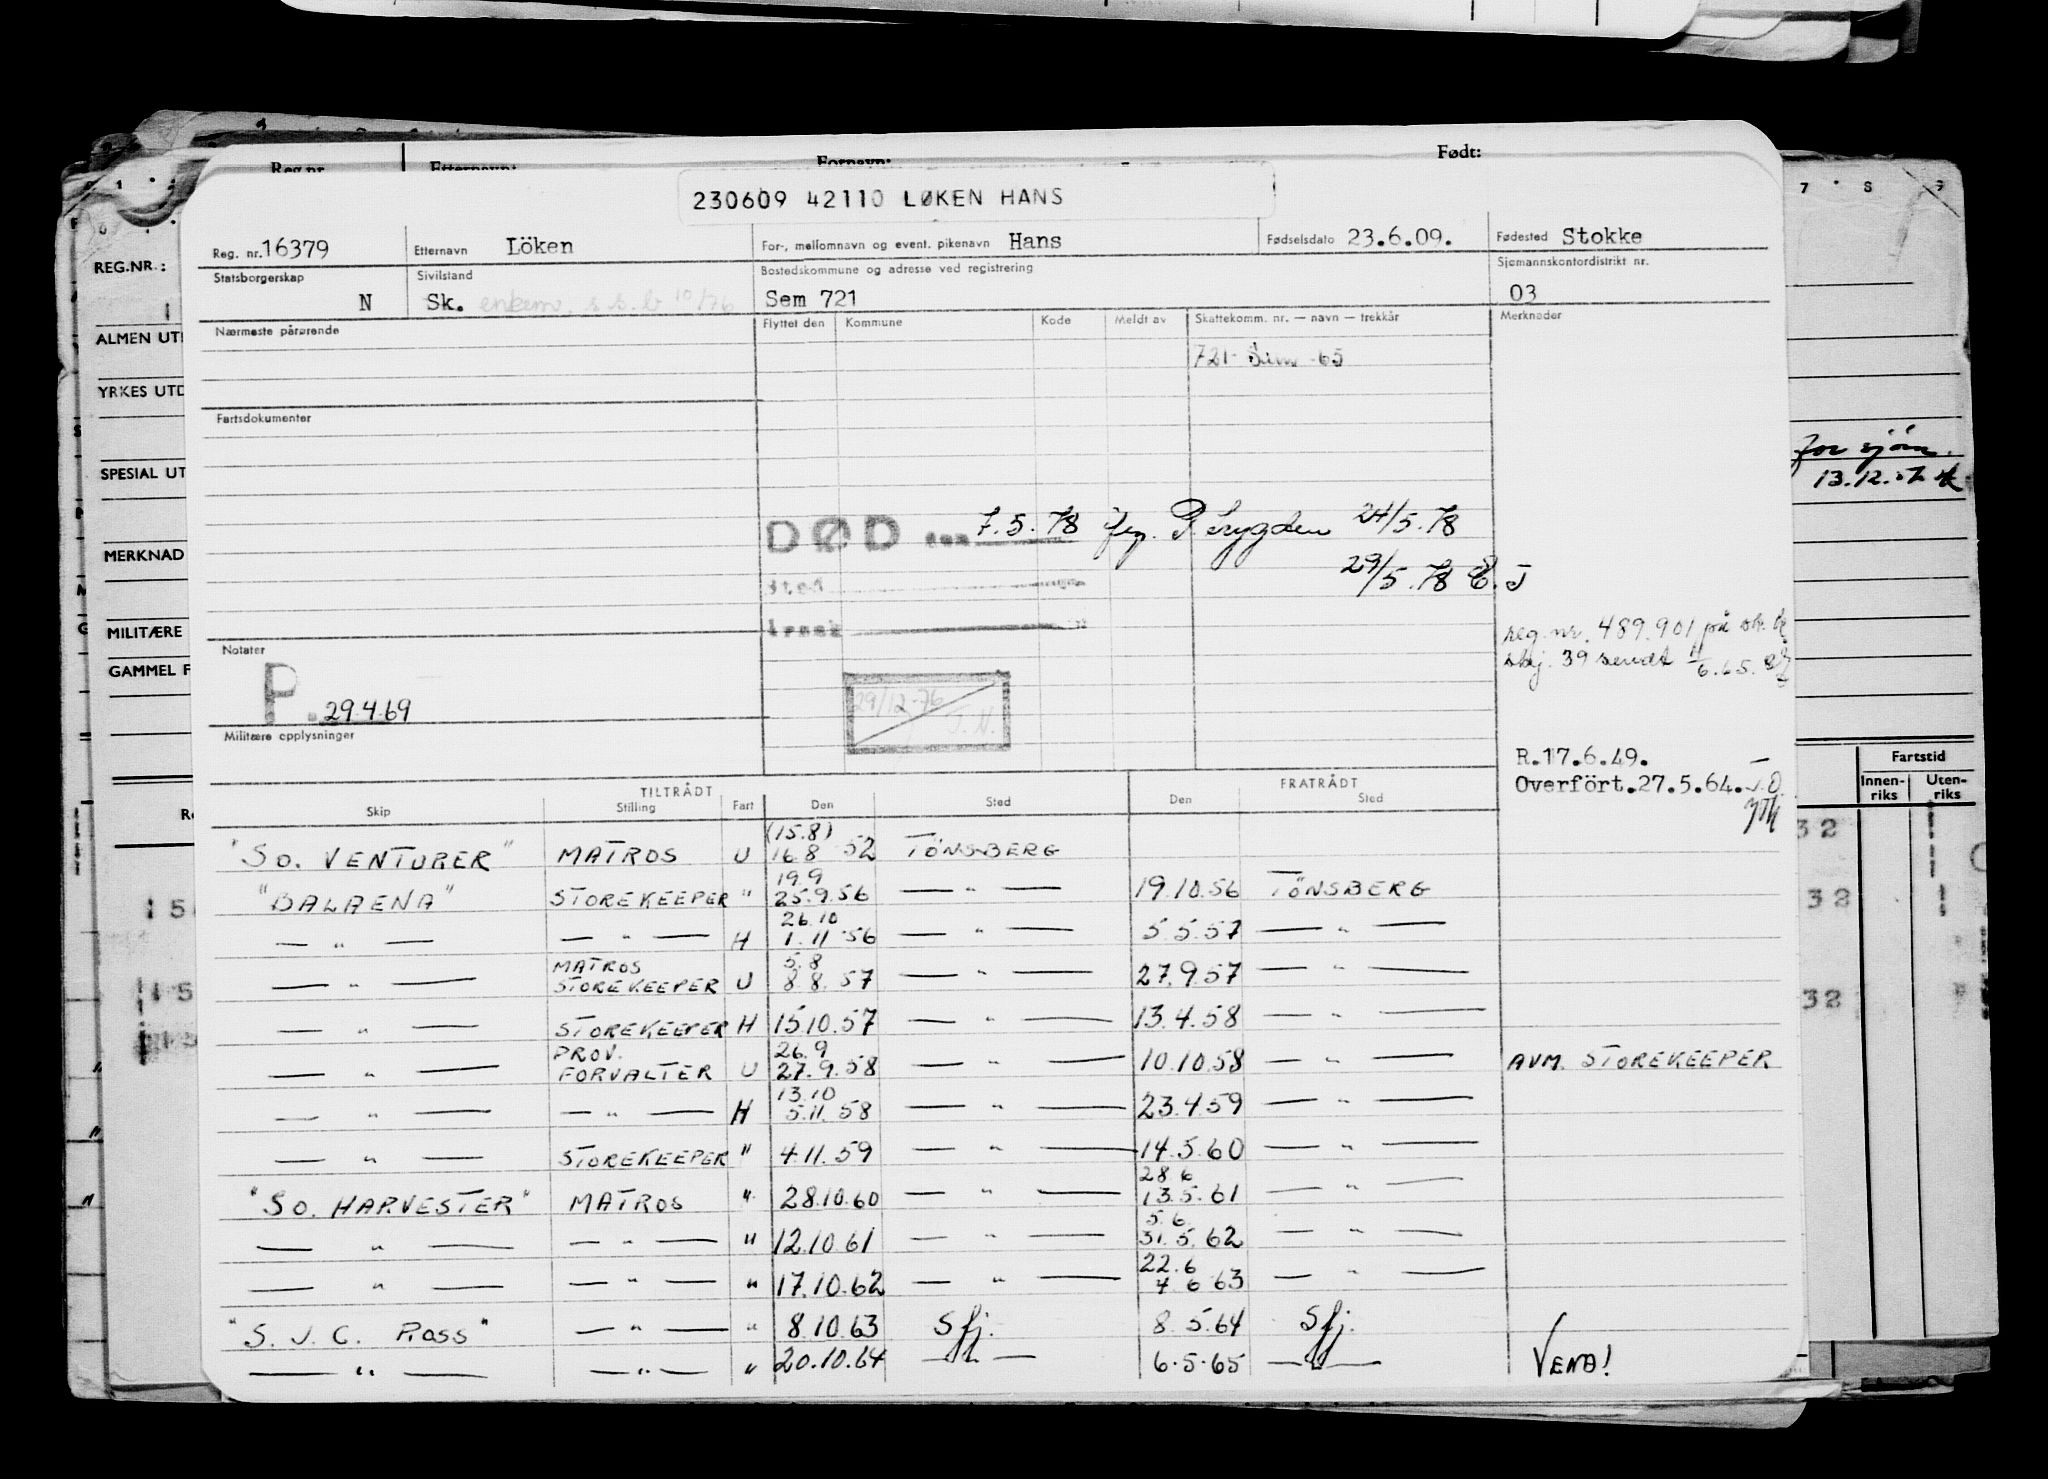 Reg.nr. Etternavn: Fornavn: Født:
7 S
230609 42110 LØKEN HANS
REG.NR.:
Reg. nr. 16379 Etternavn Löken For-, mellomnavn og event. pikenavn Hans Fødselsdato 23.6.09. Fødested Stokke
Statsborgerskap N Sivilstand Sk. Bostedskommune og adresse ved registrering Sem 721 Sjømannskontordistrikt nr. 03
enkem. s.s.b 10/76
Nærmeste pårørende Flyttet den Kommune Kode Meldt av Skattekomm. nr. — navn — trekkår Merknader
ALMEN UT
721- Sem -65
YRKES UTD
Fartsdokumenter
for sjøm.
SPESIAL UT
13.12.
DØD den 7.5.78 24/5.78
MERKNAD
sted 29/5.78 E.J
MILITÆRE
reg.nr. 489.901 på
skj. 39 sendt 11/6.65.
Notater
GAMMEL F
P. 29.4.69
29/12-76 J.N.
Militære opplysninger
R.17.6.49.
Overfört.27.5.64. J.O.
Fartstid
Innenriks Utenriks
TILTRÅDT FRATRÅDT
Skip Stilling Fart Den Sted Den Sted
(15.8)
"SO. VENTURER" MATROS U 16.8 52 TÖNSBERG
19.9
"BALAENA" STOREKEEPER " 25.9.56 — " — 19.10.56 TÖNSBERG
26.10
— " — — " — H 1.11.56 — " — 5.5.57 — " —
MATROS 5.8
— " — STOREKEEPER U 8.8.57 — " — 27.9.57 — " —
— " — STOREKEEPER H 15.10.57 — " — 13.4.58 — " —
PROV. 26.9
— " — FORVALTER U 27.9.58 — " — 10.10.58 — " — AVM. STOREKEEPER
13.10
— " — — " — H 5.11.58 — " — 23.4.59 — " —
— " — STOREKEEPER " 4.11.59 — " — 14.5.60 — " —
28.6
"SO. HARVESTER" MATROS " 28.10.60 — " — 13.5.61 — " —
5.6
— " — — " — " 12.10.61 — " — 31.5.62 — " —
22.6
— " — — " — " 17.10.62 — " — 4.6.63 — " —
"S. J. C. Ross" — " — " 8.10.63 Sfj. 8.5.64 Sfj.
— " — — " — " 20.10.64 — " — 6.5.65 — " — VEND!
32
32
32